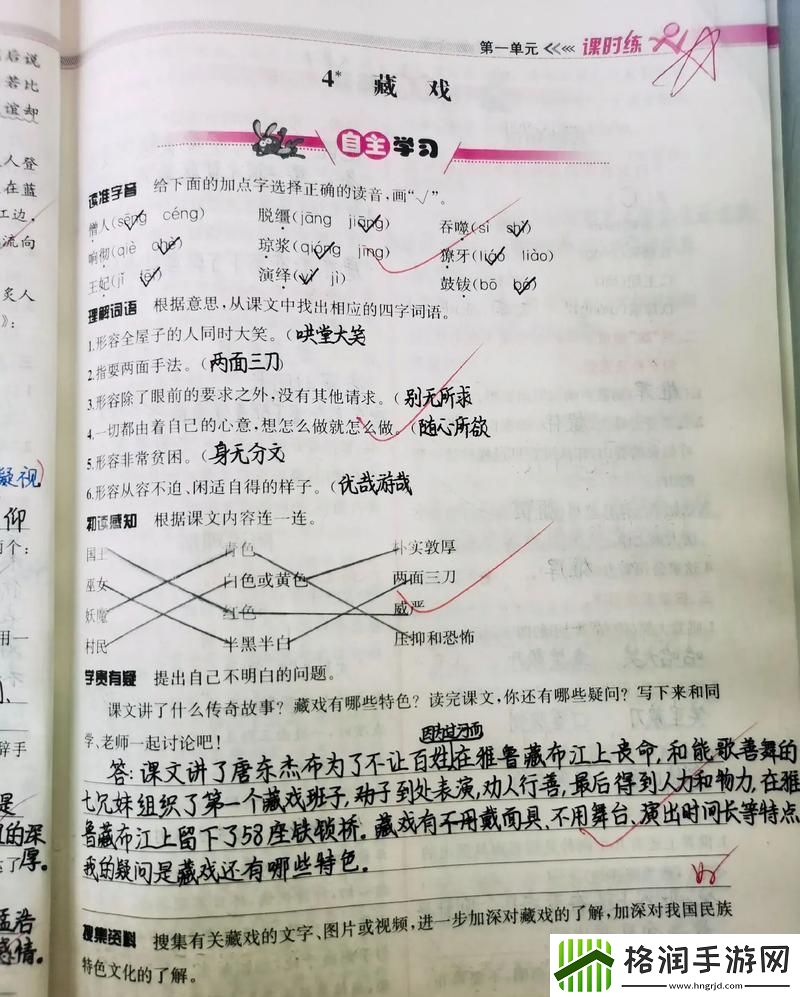 后说
若比
谊却
人登
在蓝
江边,
流向
炙人
》:
凝视)
仰
两个:
用一
辞手
是
的深
了厚。
孟浩
感情。
第一单元 课时练
4* 藏 戏
自主学习
读准字音 给下面的加点字选择正确的读音,画“√”。
僧人(sēng céng) 脱缰(jāng jiāng) 吞噬(sì shì)
响彻(qiè chè) 琼浆(qióng jīng) 獠牙(liáo liào)
王妃(jī fēi) 演绎(yì jì) 鼓钹(bō bó)
理解词语 根据意思,从课文中找出相应的四字词语。
1.形容全屋子的人同时大笑。(哄堂大笑
2.指耍两面手法。(两面三刀)
3.形容除了眼前的要求之外,没有其他请求。(别无所求
4.一切都由着自己的心意,想怎么做就怎么做。(随心所欲
5.形容非常贫困。(身无分文
6.形容从容不迫、闲适自得的样子。(优哉游哉
初读感知 根据课文内容连一连。
国王 青色 朴实敦厚
巫女 白色或黄色 两面三刀
妖魔 红色 威严
村民 半黑半白 压抑和恐怖
学贵有疑 提出自己不明白的问题。
课文讲了什么传奇故事?藏戏有哪些特色?读完课文,你还有哪些疑问?写下来和同
学、老师一起讨论吧!
因为过河而
答:课文讲了唐东杰布为了不让百姓在雅鲁藏布江上丧命,和能歌善舞的
七兄妹组织了第一个藏戏班子,到处表演,劝人行善,最后得到人力和物力,在雅
鲁藏布江上留下了58座铁锁桥。藏戏有不用戴面具、不用舞台、演出时间长等特点
我的疑问是藏戏还有哪些特色。
搜集资料 搜集有关藏戏的文字、图片或视频,进一步加深对藏戏的了解,加深对我国民族
特色文化的了解。
格润手游网
www.hngrjd.com